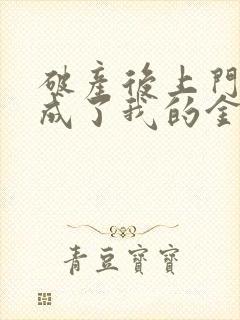 破產後上門
成了我的金
青豆寶寶